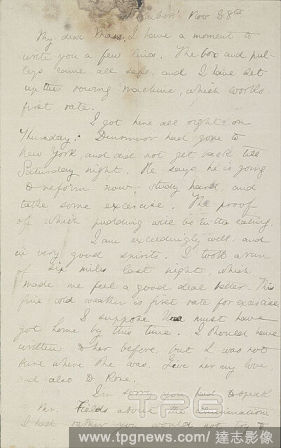 Nov 28th
My dear Mama, I have a moment to
write you a few lines. The box and pul-
leys came all safe, and I have set
up the rowing machine, which works
first rate.
I got here all right on
Thursday. had gone to
New York and did not get back till
Saturday night. He says he is going
to reform now, study hard, and
take some exercise. The proof
of which pudding will be in the eating.
I am exceedingly well, and
in very good spirits. I took a run
of six miles last night, which
made me feel a good deal better. This
fine cold weather is first rate for exercise.
I suppose must have
got home by this time. I should have
written to her before, but I was not
sure where she was. Give her my love
and also to Rose.
I'm you to speak
Fields about the
I would not
TPG
www.tpgnews.com/達志影像